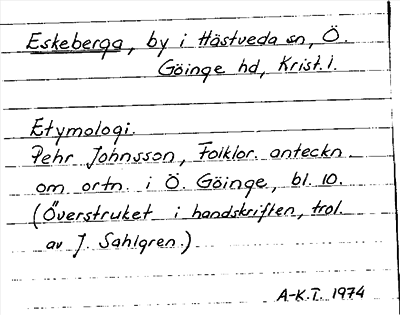 Eskeberga, by i Hästveda sn, Ö.
Göinge hd, Krist. l.
Etymologi.
Pehr Johnsson, Folklor. anteckn.
om ortn. i Ö. Göinge, bl. 10.
(Överstruket i handskriften, trol.
av J. Sahlgren.)
A-K.T. 1974